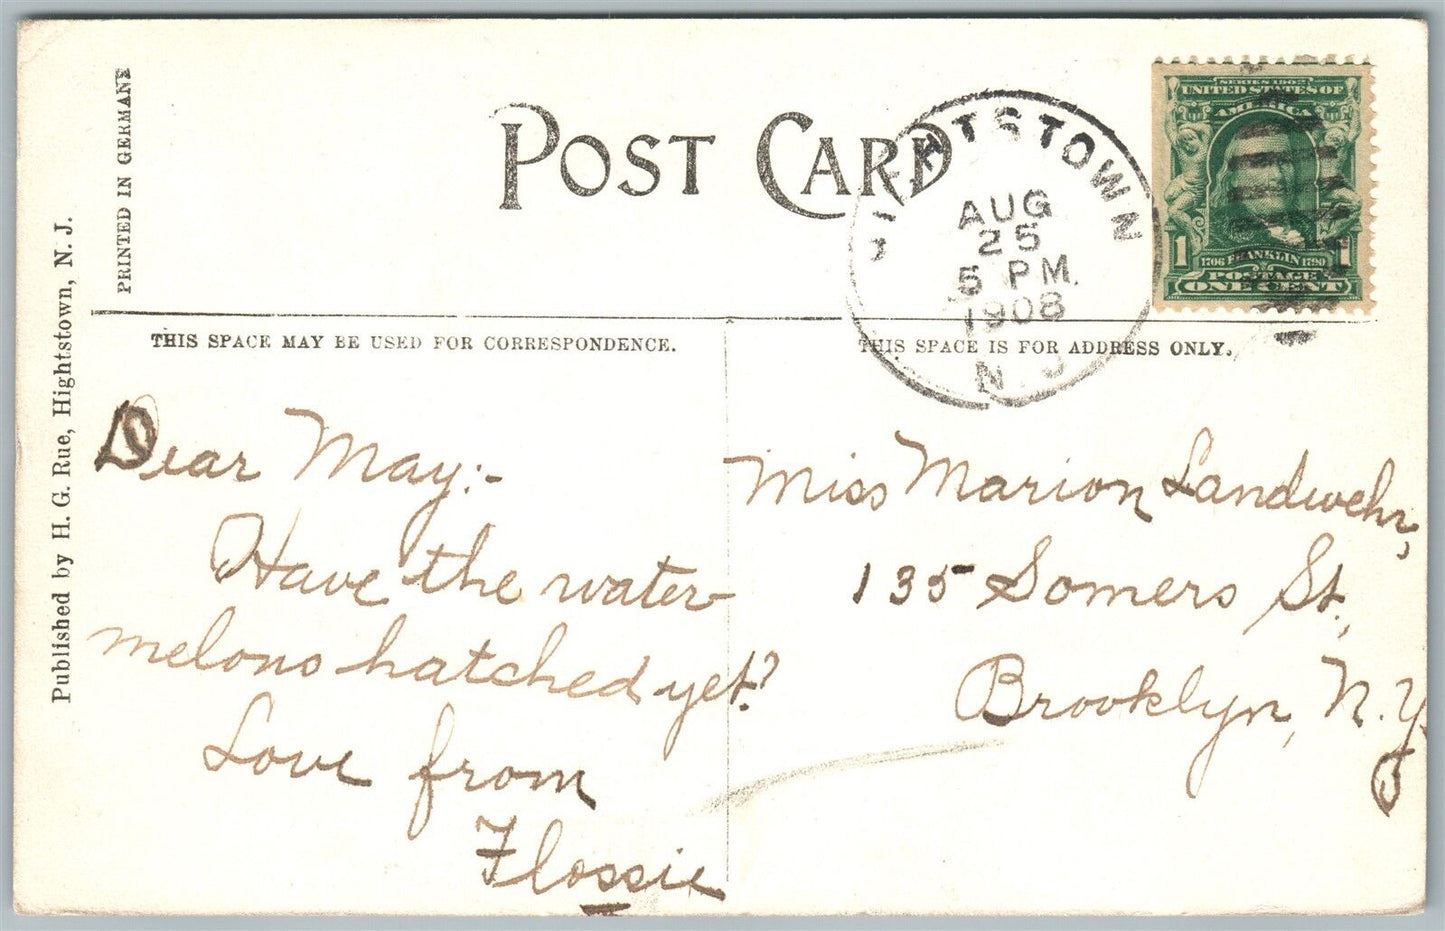 PRINTED IN GERMANY
Published by H. G. Rue, Hightstown, N. J.
POST CARD
HIGHTSTOWN
AUG
25
5 PM.
1908
N. J.
SERIES 1902
UNITED STATES OF
AMERICA
1 1
1706 FRANKLIN 1790
POSTAGE
ONE CENT
THIS SPACE MAY BE USED FOR CORRESPONDENCE.
THIS SPACE IS FOR ADDRESS ONLY.
Dear May:-
Have the water-
melons hatched yet?
Love from
Flossie
Miss Marion Landwehr,
135 Somers St.,
Brooklyn, N. Y.